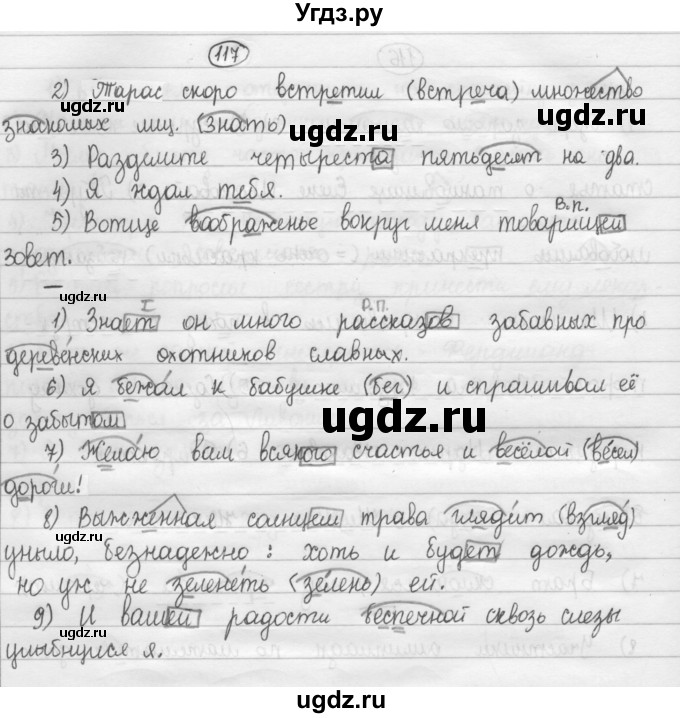 Угдз.ру
117
2) Тарас скоро встретил (встреча) множество
знакомых лиц. (знать)
ugdz.ru ugdz.ru ugdz.ru
3) Разделите четыреста пятьдесят на два.
4) Я ждал тебя.
ugdz.ru
В.п.
5) Вотще воображенье вокруг меня товарищей
зовет.
ugdz.ru
I Р.П.
1) Знает он много рассказов забавных про
деревенских охотников славных.
6) Я бежал к бабушке (бег) и спрашивал её
о забытом
ugdz.ru ugdz.ru
7) Желаю вам всякого счастья и весёлой (весел)
дороги!
8) Выжженная солнцем трава глядит (взгляд)
ugdz.ru
уныло, безнадежно: хоть и будет дождь,
но уж не зеленеть (зелень) ей.
9) И вашей радости беспечной сквозь слезы
ugdz.ru ugdz.ru
улыбнулся я.
ugdz.ru